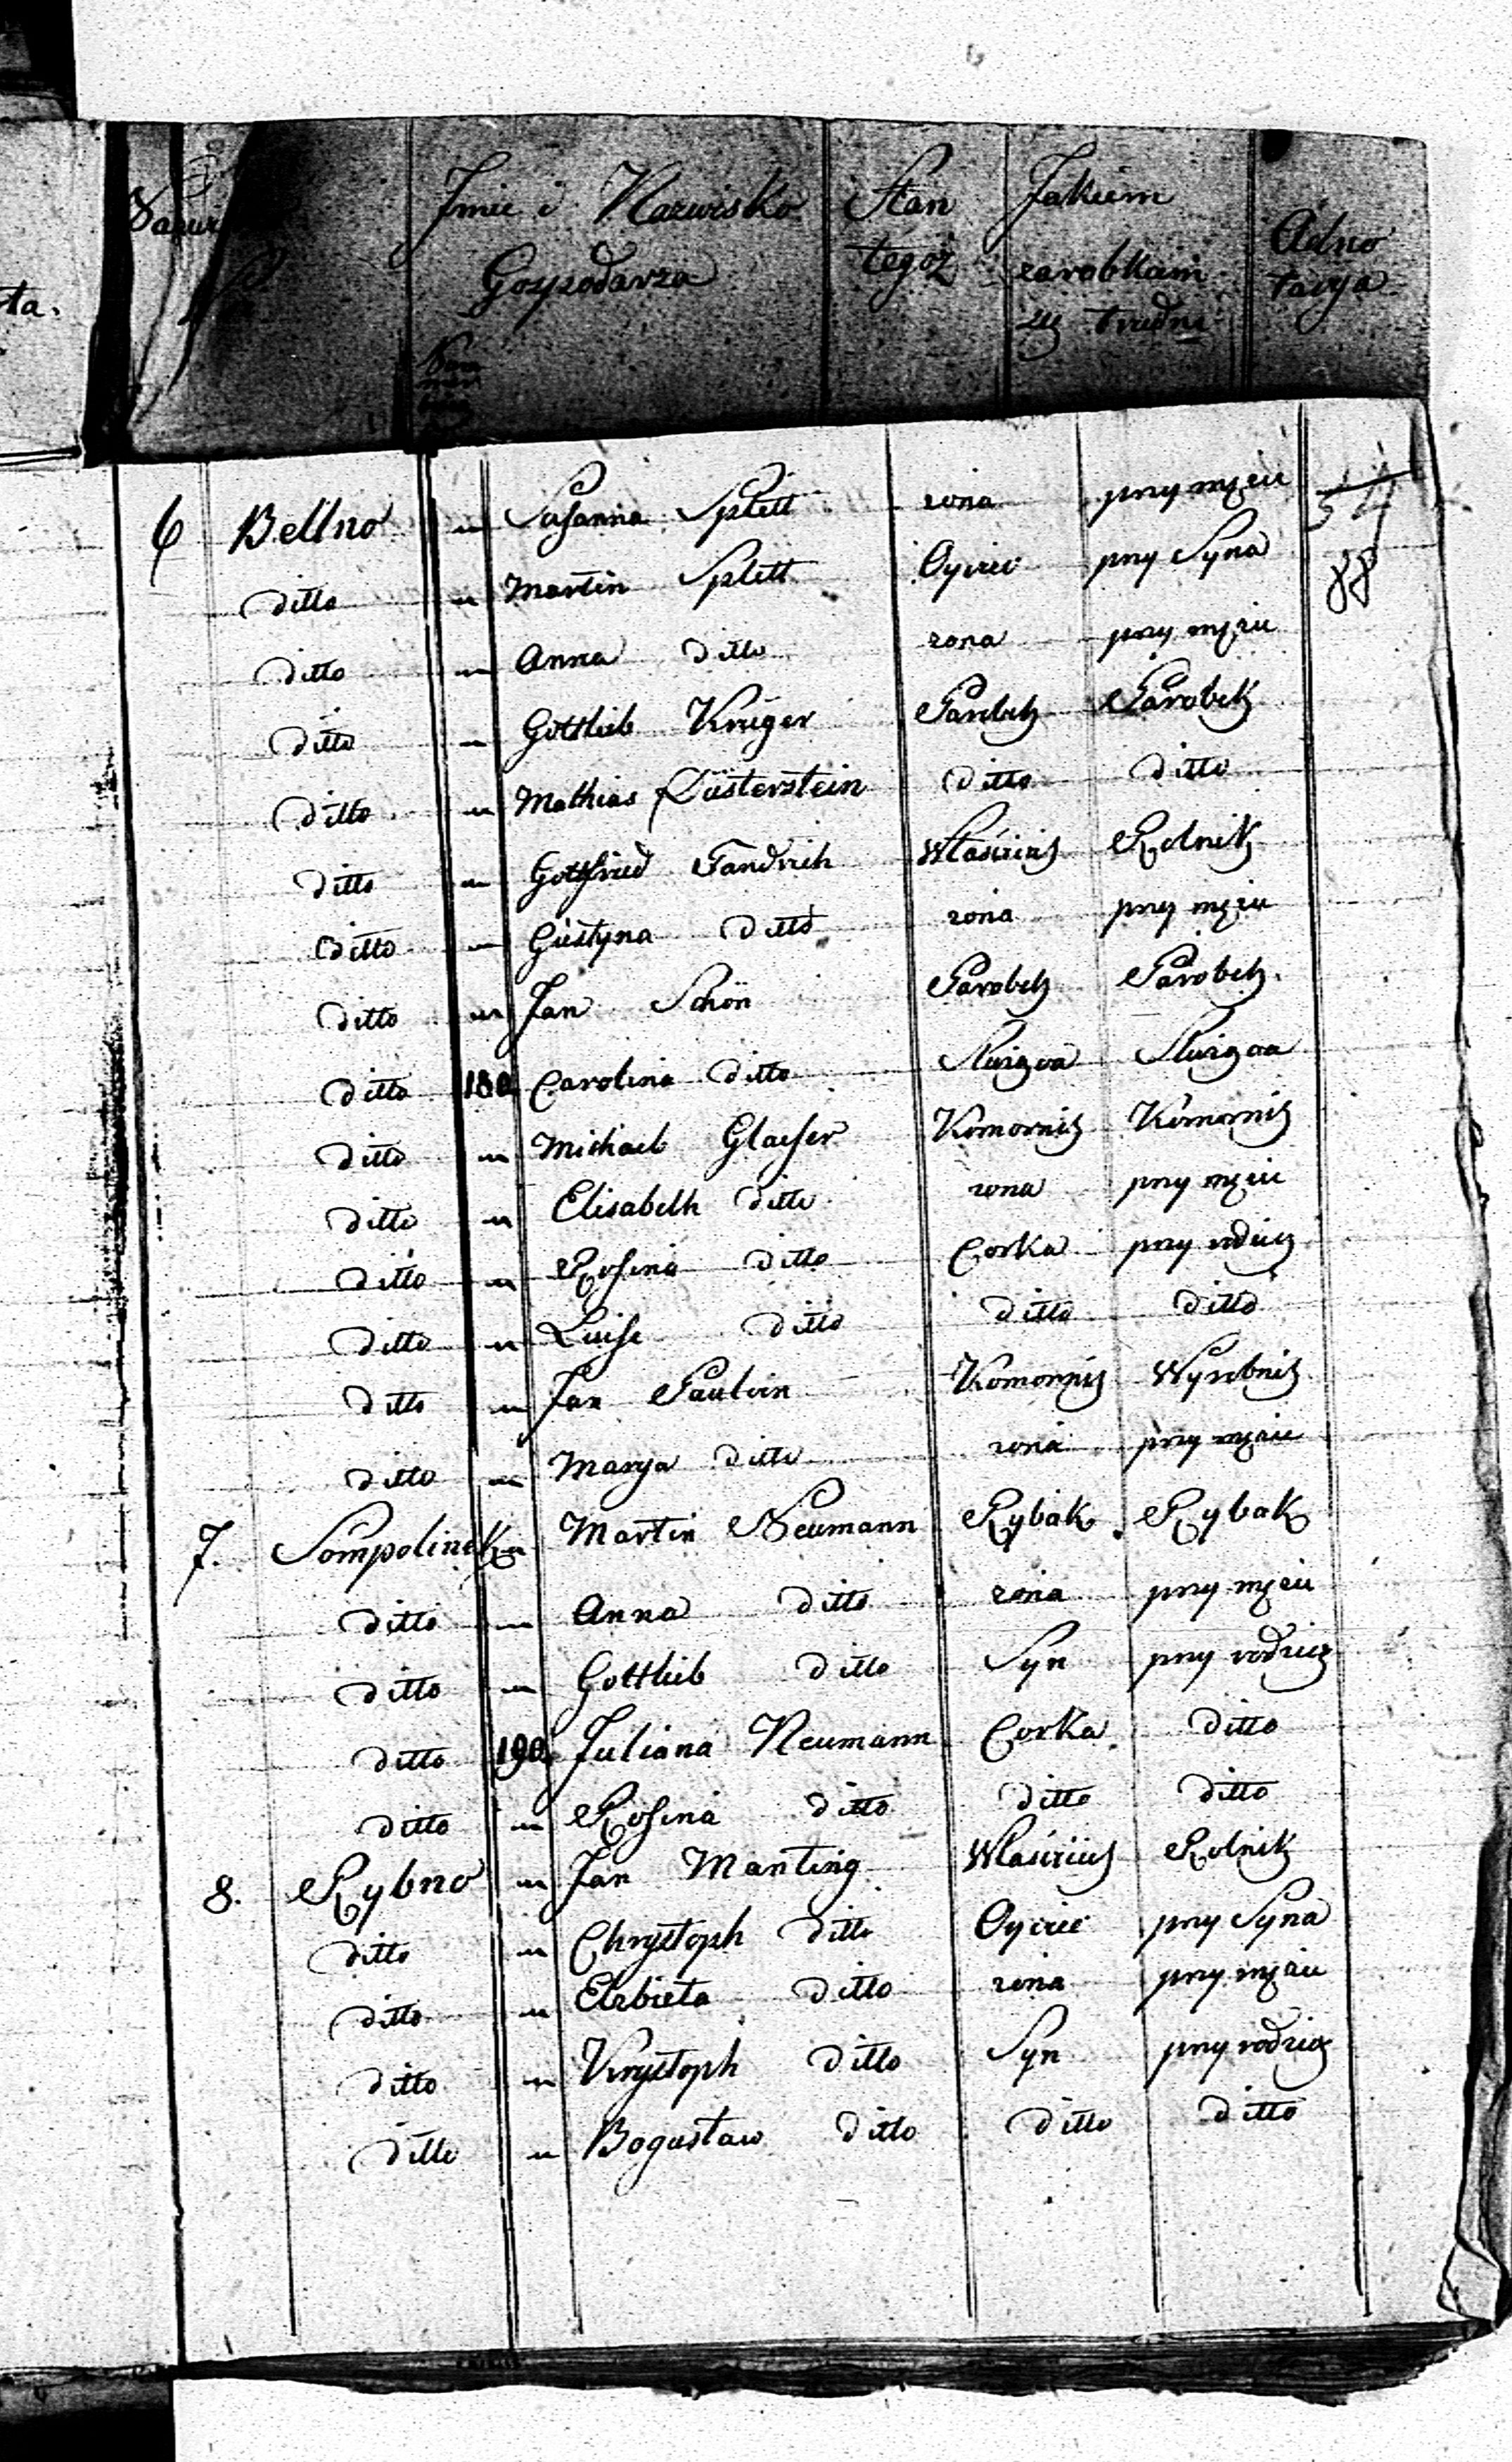 ta.
Imie i Nazwisko Gospodarza
Stan tegoż
Jakiem zarobkiem się trudni
Adno tacya
6 Bellno " Susanna Splett zona przy mężu 54
ditto " Martin Splett Oyciec przy Syna 88
ditto " Anna ditto zona przy mężu
ditto " Gottlieb Krüger Parobek Parobek
ditto " Mathias Düsterstein ditto ditto
ditto " Gottfried Fandrich Właściciel Rolnik
ditto " Gustyna ditto zona przy mężu
ditto " Jan Schön Parobek Parobek
ditto 180 Carolina ditto Służąca Służąca
ditto " Michael Glaeser Komornik Komornik
ditto " Elisabeth ditto zona przy mężu
ditto " Rosina ditto Corka przy rodzicz
ditto " Luise ditto ditto ditto
ditto " Jan Pautvin Komornik Wyrobnik
ditto " Marya ditto zona przy mężu
7. Sompolinek " Martin Neumann Rybak Rybak
ditto " Anna ditto zona przy mężu
ditto " Gottlieb ditto Syn przy rodzicz
ditto 190 Juliana Neumann Corka ditto
ditto " Rosina ditto ditto ditto
8. Rybno " Jan Manting Właściciel Rolnik
ditto " Chrystoph ditto Oyciec przy Syna
ditto " Elzbieta ditto zona przy mężu
ditto " Krystoph ditto Syn przy rodzicz
ditto " Bogusław ditto ditto ditto